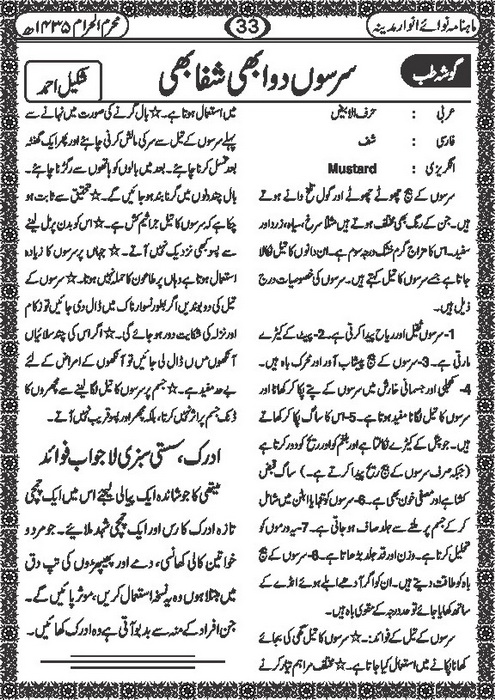 ماہنامہ نوائے انوار مدینہ
33
محرم الحرام ۱۴۳۵ھ
گوشہ طب
سرسوں دوا بھی شفا بھی
شکیل احمد
عربی : حرف الابیض
فارسی : شف
انگریزی : Mustard
سرسوں کے بیج چھوٹے چھوٹے اور گول تلخ دانے ہوتے
ہیں۔ جن کے رنگ بھی مختلف ہوتے ہیں مثلاً سرخ، سیاہ، زرد اور
سفید۔ اس کا مزاج گرم خشک درجہ سوم ہے۔ ان دانوں کا تیل نکالا
جاتا ہے جسے سرسوں کا تیل کہتے ہیں۔ سرسوں کی خصوصیات درج
ذیل ہیں۔
1-سرسوں ثقیل اور ریاح پیدا کرتی ہے۔ 2- پیٹ کے کیڑے
مارتی ہے۔ 3-سرسوں کے بیج پیشاب آور اور محرک باہ ہیں۔
4- کھجلی اور جسمانی خارش میں سرسوں کے پتے پکا کر کھانا اور
سرسوں کا تیل لگانا مفید ہوتا ہے۔ 5-اس کا ساگ پکا کر کھاتے
ہیں۔ جو پیٹ کے کیڑے نکالتا ہے اور بلغم کو اور ریح کو دور کرتا ہے
(جبکہ صرف سرسوں کے بیج ریح پیدا کرتے ہے۔) ساگ قبض
کشا ہے اور مصفی خون بھی ہے۔ 6-سرسوں کو تنہا یا ابٹن میں شامل
کر کے جسم پر ملنے سے جلد صاف ہو جاتی ہے۔ 7-یہ ورموں کو
تحلیل کرتا ہے۔ وزن اور قد جلد بڑھاتا ہے۔ 8-سرسوں کے بیج
باہ کو طاقت دیتے ہیں۔ ان کو اگر آدھے ابلے ہوئے انڈے کے
ساتھ کھایا جائے تو حد درجہ کے مقوی باہ ہیں۔
سرسوں کے تیل کے فوائد:۔ ☆سرسوں کا تیل گھی کی بجائے
کھانا پکانے میں استعمال کیا جاتا ہے۔ ☆مختلف مراہم تیار کرنے
میں استعمال ہوتا ہے۔ ☆بال گرنے کی صورت میں نہانے سے
پہلے سرسوں کے تیل سے سر کی مالش کرنی چاہئے اور پھر ایک گھنٹہ
بعد غسل کرنا چاہئے۔ بعد میں بالوں کو ہاتھوں سے رگڑنا چاہئے۔
بال چند دنوں میں گرنا بند ہو جائیں گے۔ ☆تحقیق سے ثابت ہو
چکا ہے کہ سرسوں کا تیل جراثیم کش ہے۔ ☆اس کو بدن پر مل لینے
سے پسو بھی نزدیک نہیں آتے۔ ☆ جہاں پر سرسوں کا زیادہ
استعمال ہوتا ہے وہاں پر طاعون کا حملہ نہیں ہوتا۔ ☆سرسوں کے
تیل کی دو بوندیں اگر بطور نسوار ناک میں ڈال دی جائیں تو زکام
اور نزلہ کی شکایت دور ہو جائے گی۔ ☆اگر اس کی چند سلائیاں
آنکھوں میں ڈال لی جائیں تو آنکھوں کے امراض کے لئے
بے حد مفید ہے۔ ☆جسم پر سرسوں کا تیل لگا لینے سے مچھروں کا
ڈنک جسم پر اثر نہیں کرتا، بلکہ مچھر اور پسو قریب نہیں آتے۔
ادرک، سستی سبزی لاجواب فوائد
میتھی کا جوشاندہ ایک پیالی لیجئے اس میں ایک چمچی
تازہ ادرک کا رس اور ایک چمچی شہد ملائیے۔ جو مرد و
خواتین کالی کھانسی، دمے اور پھیپھڑوں کی تپ دق
میں مبتلا ہوں وہ یہ نسخہ استعمال کریں، موثر پائیں گے۔
جن افراد کے منہ سے بدبو آتی ہے وہ ادرک کھائیں۔